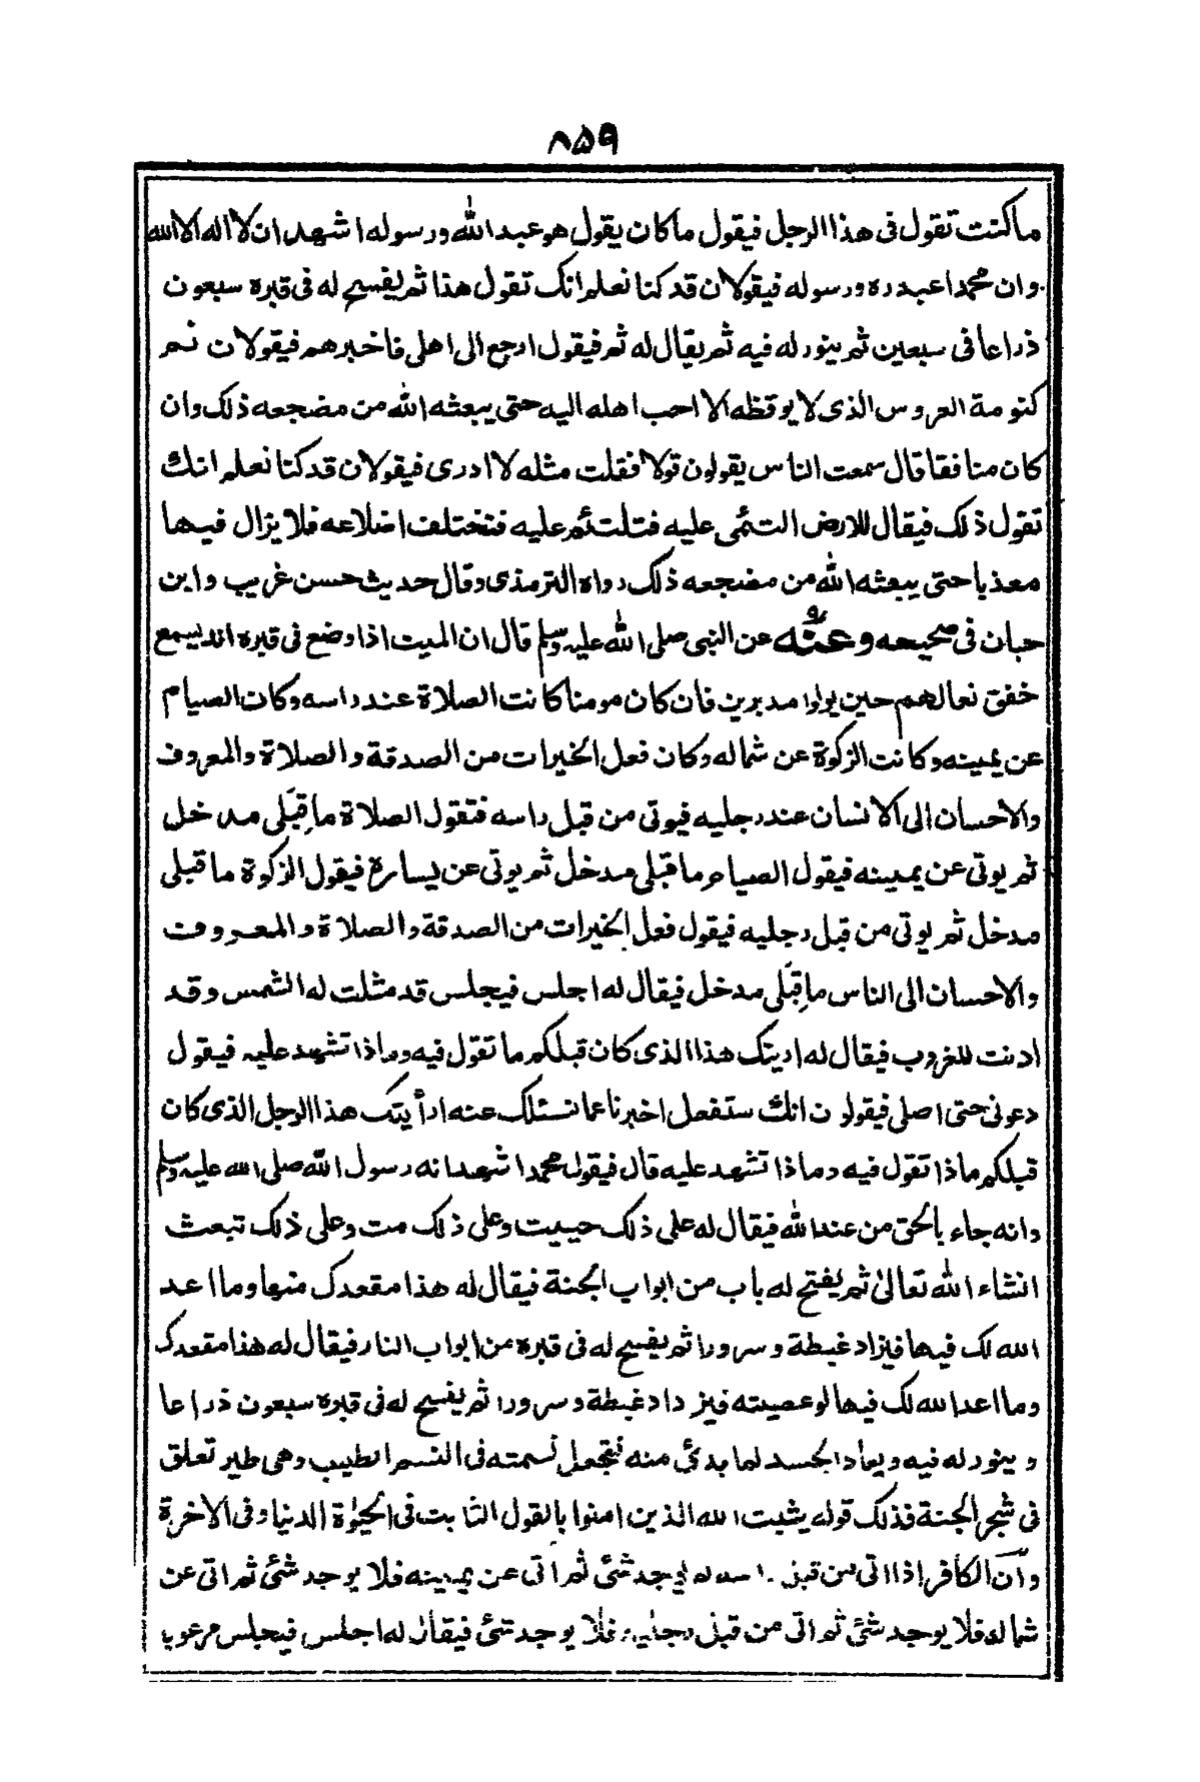 ۸۵۹
ما كنت تقول فى هذا الرجل فيقول ما كان يقول هو عبد الله ورسوله اشهد ان لا اله الا الله
وان محمدا عبده ورسوله فيقولان قد كنا نعلم انك تقول هذا ثم يفسح له فى قبره سبعون
ذراعا فى سبعين ثم ينور له فيه ثم يقال له ثم فيقول ارجع الى اهلى فاخبرهم فيقولان نم
كنومة العروس الذى لا يوقظه الا احب اهله اليه حتى يبعثه الله من مضجعه ذلك وان
كان منافقا قال سمعت الناس يقولون قولا فقلت مثله لا ادرى فيقولان قد كنا نعلم انك
تقول ذلك فيقال للارض التئمى عليه فتلتئم عليه فتختلف اضلاعه فلا يزال فيها
معذبا حتى يبعثه الله من مضجعه ذلك رواه الترمذى وقال حديث حسن غريب وابن
حبان فى صحيحه وعنه عن النبى صلى الله عليه وسلم قال ان الميت اذا وضع فى قبره انه ليسمع
خفق نعالهم حين يولوا مدبرين فان كان مومنا كانت الصلاة عند راسه وكان الصيام
عن يمينه وكانت الزكوة عن شماله وكان فعل الخيرات من الصدقة والصلاة والمعروف
والاحسان الى الانسان عند رجليه فيوتى من قبل راسه فتقول الصلاة ما قِبَلى مدخل
ثم يوتى عن يمينه فيقول الصيام ما قبلى مدخل ثم يوتى عن يساره فيقول الزكوة ما قبلى
مدخل ثم يوتى من قبل رجليه فيقول فعل الخيرات من الصدقة والصلاة والمعروف
والاحسان الى الناس ما قِبَلى مدخل فيقال له اجلس فيجلس قد مثلت له الشمس وقد
ادنت للغروب فيقال له اريتك هذا الذى كان قبلكم ما تقول فيه وماذا تشهد عليه فيقول
دعونى حتى اصلى فيقولون انك ستفعل اخبرنا عما نسئلك عنه ارأيتك هذا الرجل الذى كان
قبلكم ماذا تقول فيه وماذا تشهد عليه قال فيقول محمد اشهد انه رسول الله صلى الله عليه وسلم
وانه جاء بالحق من عند الله فيقال له على ذلك حييت وعلى ذلك مت وعلى ذلك تبعث
انشاء الله تعالىٰ ثم يفتح له باب من ابواب الجنة فيقال له هذا مقعدك منها وما اعد
الله لك فيها فيزاد غبطة وسرورا ثم يفسح له فى قبره من ابواب النار فيقال له هذا مقعدك
وما اعد الله لك فيها لو عصيته فيزداد غبطة وسرورا ثم يفسح له فى قبره سبعون ذراعا
وينور له فيه ويعاد الجسد لما بدئ منه فتجعل نسمته فى النسم الطيب وهى طير تعلق
فى شجر الجنة فذلك قوله يثبت الله الذين امنوا بالقول الثابت فى الحيٰوة الدنيا وفى الاخرة
وان الكافر اذا اتى من قبل راسه لم يوجد شئ ثم اتى عن يمينه فلا يوجد شئ ثم اتى عن
شماله فلا يوجد شئ ثم اتى من قبل رجليه فلا يوجد شئ فيقال له اجلس فيجلس مرعوبا